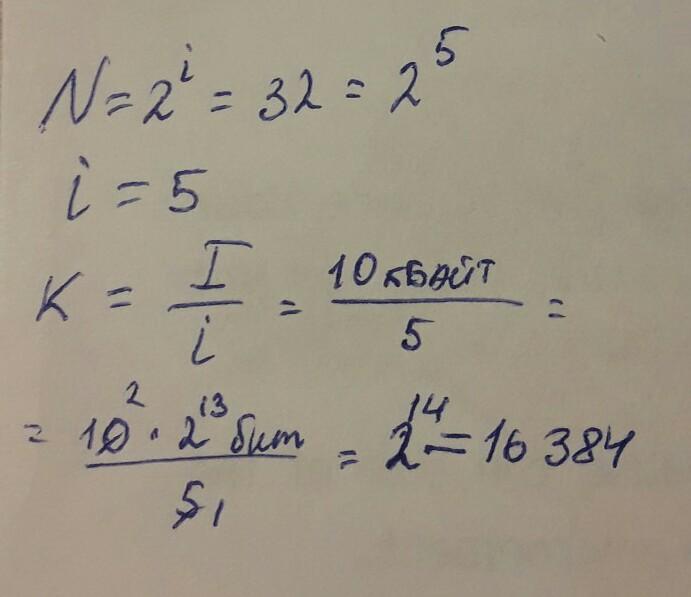 N = 2^i = 32 = 2^5
i = 5
K = I/i = 10 кБайт/5 =
= 10^2 · 2^13 бит/5 1 = 2^14 = 16 384